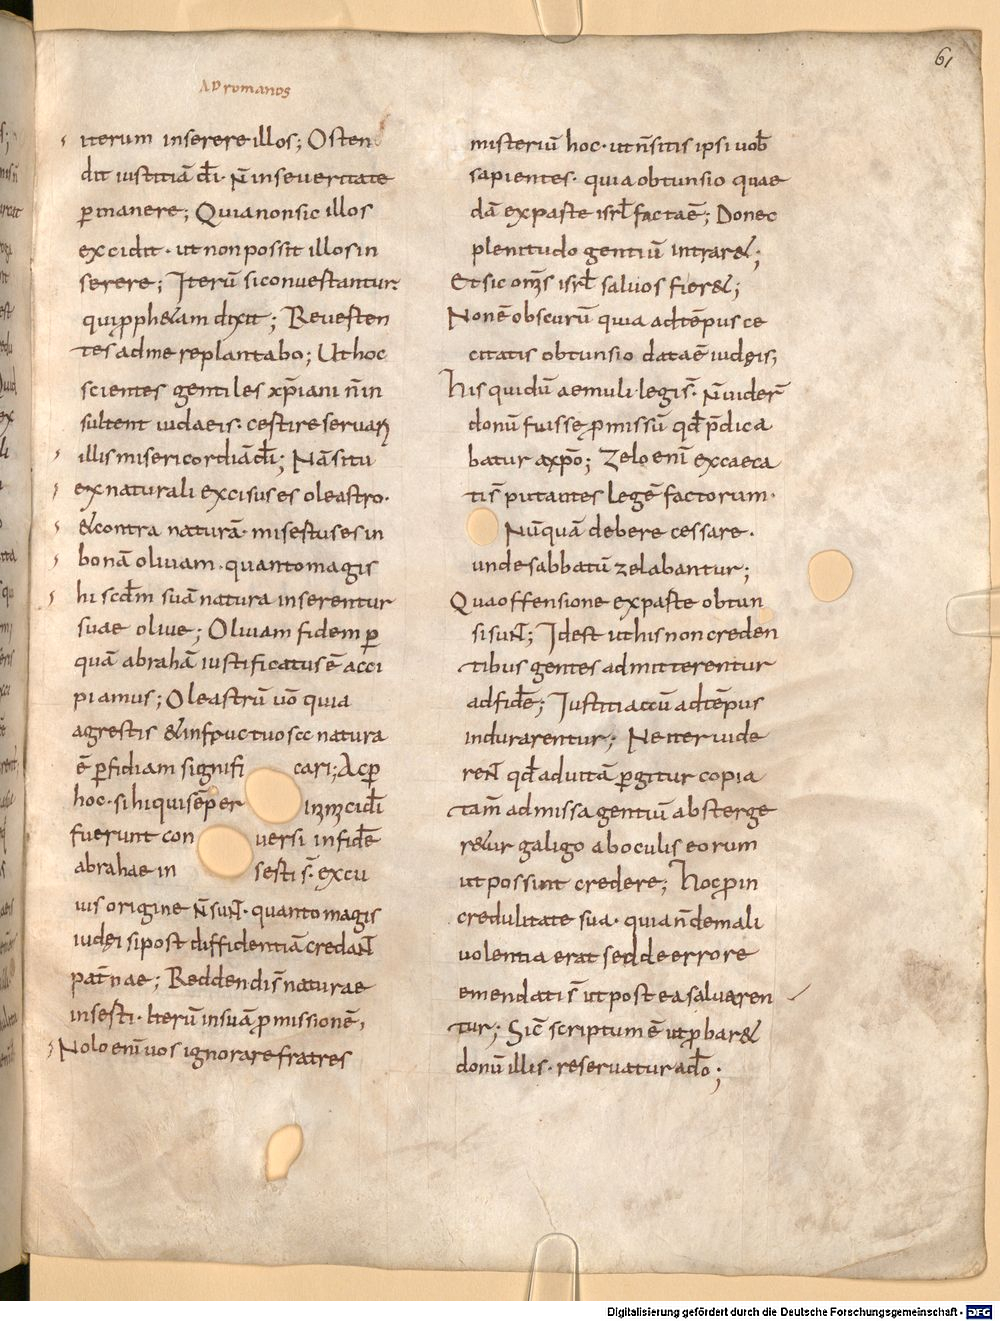 61
AD romanos
iterum inserere illos; Osten
dit iustitiā dī· n̄ inseueritate
ꝑmanere; Quianonsic illos
excidit· ut non possit illosin
serere; Iterū siconuestantur
quiꝑph&am dixit; Reuesten
tes adme replantabo; Uthoc
scientes gentiles xp̄iani n̄in
sultent iudaeis·
illis misericordiā dī; Nā situ
ex naturali excisus es oleastro·
&contra naturā· insestuses in
bonā oliuam· quantomagis
hi scdm̄ suā natura inserentur
suae oliue; Oliuam fidem ꝑ
quā abrahā iustificatus ē acci
piamus; Oleastrū uō quia
agrestis &infructuosae natura
ē ꝑfidiam signifi cari; Acꝑ
hoc· si hiquisēper
fuerunt con uersi infidē
abrahae in sesti s̄· excu
ius origine n̄ suNT· quanto magis
iudęi sipost diffidentiā credaNT
pat̄nae; Reddendi s̄ naturae
insesti· Iterū insuā ꝓmissionē,
Nolo enī uos ignorare fratres
misteriū hoc· ut n̄ sitis ipsi uob̄
sapientes· quia obtunsio quae
dā expaste isrl̄ facta ē; Donec
plenitudo gentiū intrar&;
Et sic om̄s isrl̄ saluos fier&;
Non ē obscurū quia adtēpus ce
citatis obtunsio data ē iudęis;
his quidū aemuli legis s̄· n̄ uider̄
donū fuisse ꝓmissū qd̄ p̄dica
batur axpō; Zelo enī excaeca
ti s̄ putantes legē factorum·
Nūquā debere cessare·
unde sabbatū zelabantur;
Qua offensione expaste obtun
si suNT; Idest ut his non creden
tibus gentes admitterentur
adfidē; Iustitia cū adtēpus
indurarentur; Ne iter uide
reNT qd̄ aduitā ꝑgitur copia
tam̄ admissa gentiū absterge
r&ur galigo ab oculis eorum
ut possint credere; Hoc ꝓ in
credulitate sua· quia n̄ demali
uolentia erat sed de errore
emendati s̄ ut post ea saluaren
tur; Sic̄ scriptum ē ut ꝓbar&
donū illis· reseruatur adō;
Digitalisierung gefördert durch die Deutsche Forschungsgemeinschaft - DFG